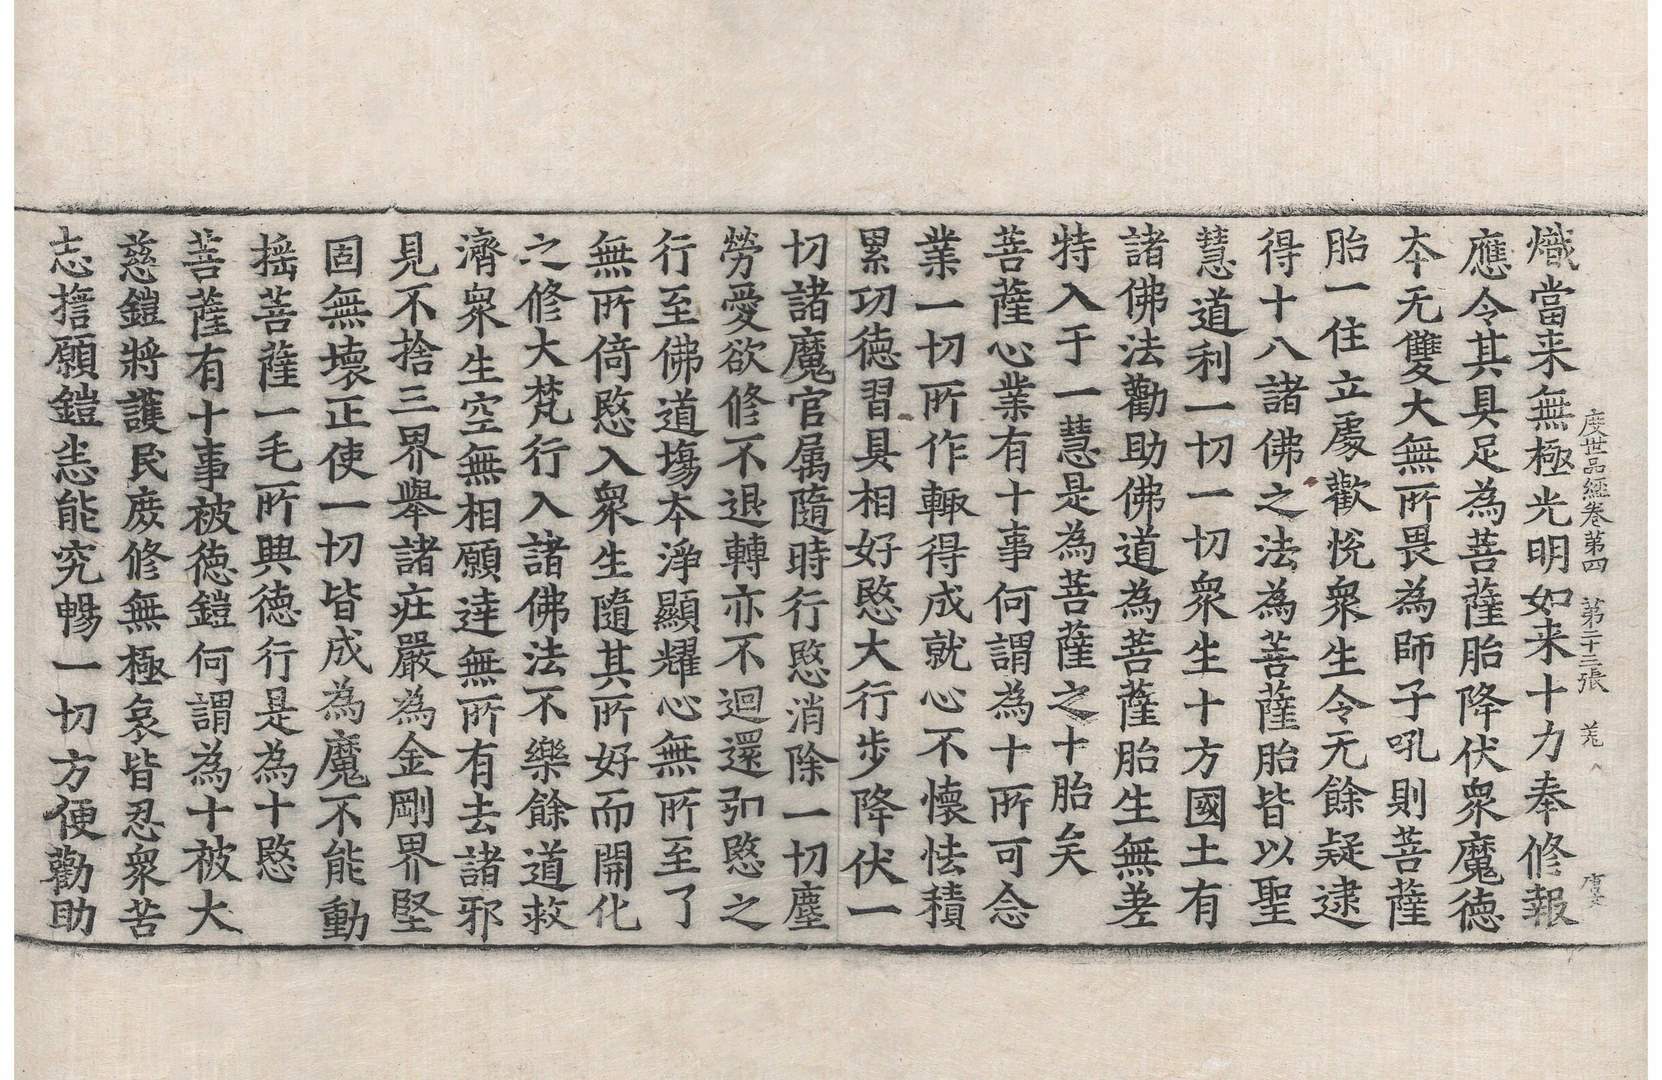 度世品經卷第四　第二十三張　羌
熾當来無極光明如来十力奉修報
應令其具足為菩薩胎降伏衆魔德
夲无雙大無所畏為師子吼則菩薩
胎一住立處歡悅衆生令无餘疑逮
得十八諸佛之法為菩薩胎皆以聖
慧道利一切一切衆生十方國土有
諸佛法勸助佛道為菩薩胎生無差
特入于一慧是為菩薩之十胎矣
菩薩心業有十事何謂為十所可念
業一切所作輙得成就心不懷怯積
累功德習具相好愍大行步降伏一
切諸魔官属隨時行愍消除一切塵
勞愛欲修不退轉亦不迴還弘愍之
行至佛道塲夲淨顯耀心無所至了
無所倚愍入衆生隨其所好而開化
之修大梵行入諸佛法不樂餘道救
濟衆生空無相願達無所有去諸邪
見不捨三界舉諸莊嚴為金剛界堅
固無壞正使一切皆成為魔不能動
揺菩薩一毛所興德行是為十愍
菩薩有十事被德鎧何謂為十被大
慈鎧將護民庶修無極哀皆忍衆苦
志誓願鎧恙能究暢一切方便勸助